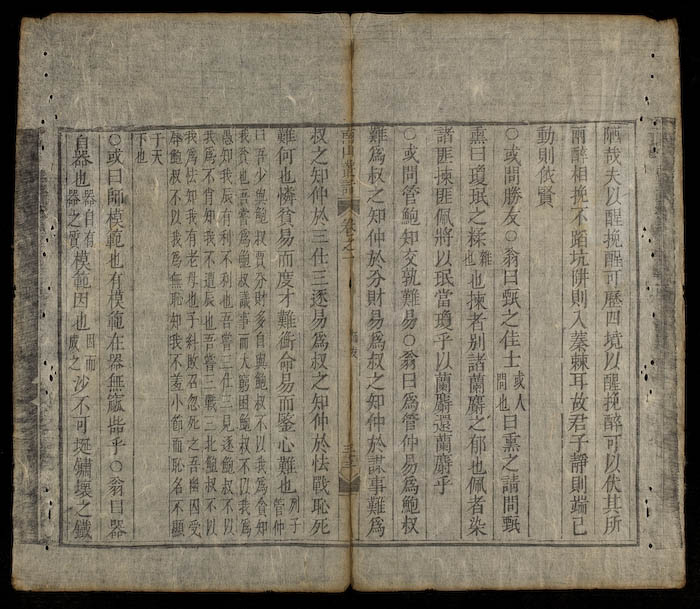 陋哉夫以醒挽醒可歷四境以醒挽醉可以伏其所
兩醉相挽不蹈坑阱則入蓁棘耳故君子靜則端己
動則依賢
○或問勝友○翁曰甄之佳士或人問也曰熏之請問甄
熏曰瓊珉之糅雜也也揀者别諸蘭麝之郁也佩者染
諸匪揀匪佩將以珉當瓊乎以蘭麝還蘭麝乎
○或問管鮑知交孰難易○翁曰爲管仲易爲鮑叔
難爲叔之知仲於分財易爲叔之知仲於謀事難爲
卷之一
叔之知仲於三仕三逐易爲叔之知仲於怯戰恥死
難何也憐貧易而度才難衡命易而鑒心難也列子管仲
曰吾少與鮑叔賈分財多自與鮑叔不以我爲貪知
我貧也吾嘗爲鮑叔謀事而大窮困鮑叔不以我爲
愚知我辰有利不利也吾嘗三仕三見逐鮑叔不以
我爲不肖知我不遭辰也吾嘗三戰三北鮑叔不以
我爲怯知我有老母也子糾敗召忽死之吾幽囚受
辱鮑叔不以我爲無恥知我不羞小節而恥名不顯
于天
下也
○或曰師模範也有模範在器無窳呰乎○翁曰器
自器也器自有器之質模範因也因而成之沙不可埏鏽壞之鐵